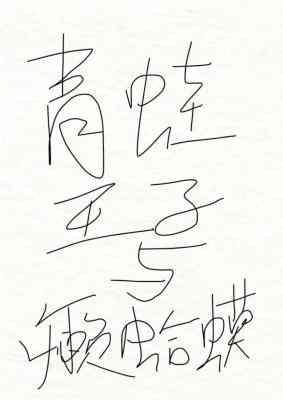 青蛙
王子
与
癞蛤蟆